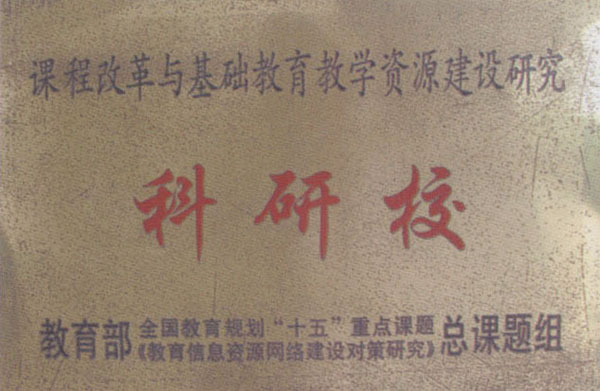 课程改革与基础教育教学资源建设研究
科研校
教育部 全国教育规划“十五”重点课题 总课题组
《教育信息资源网络建设对策研究》